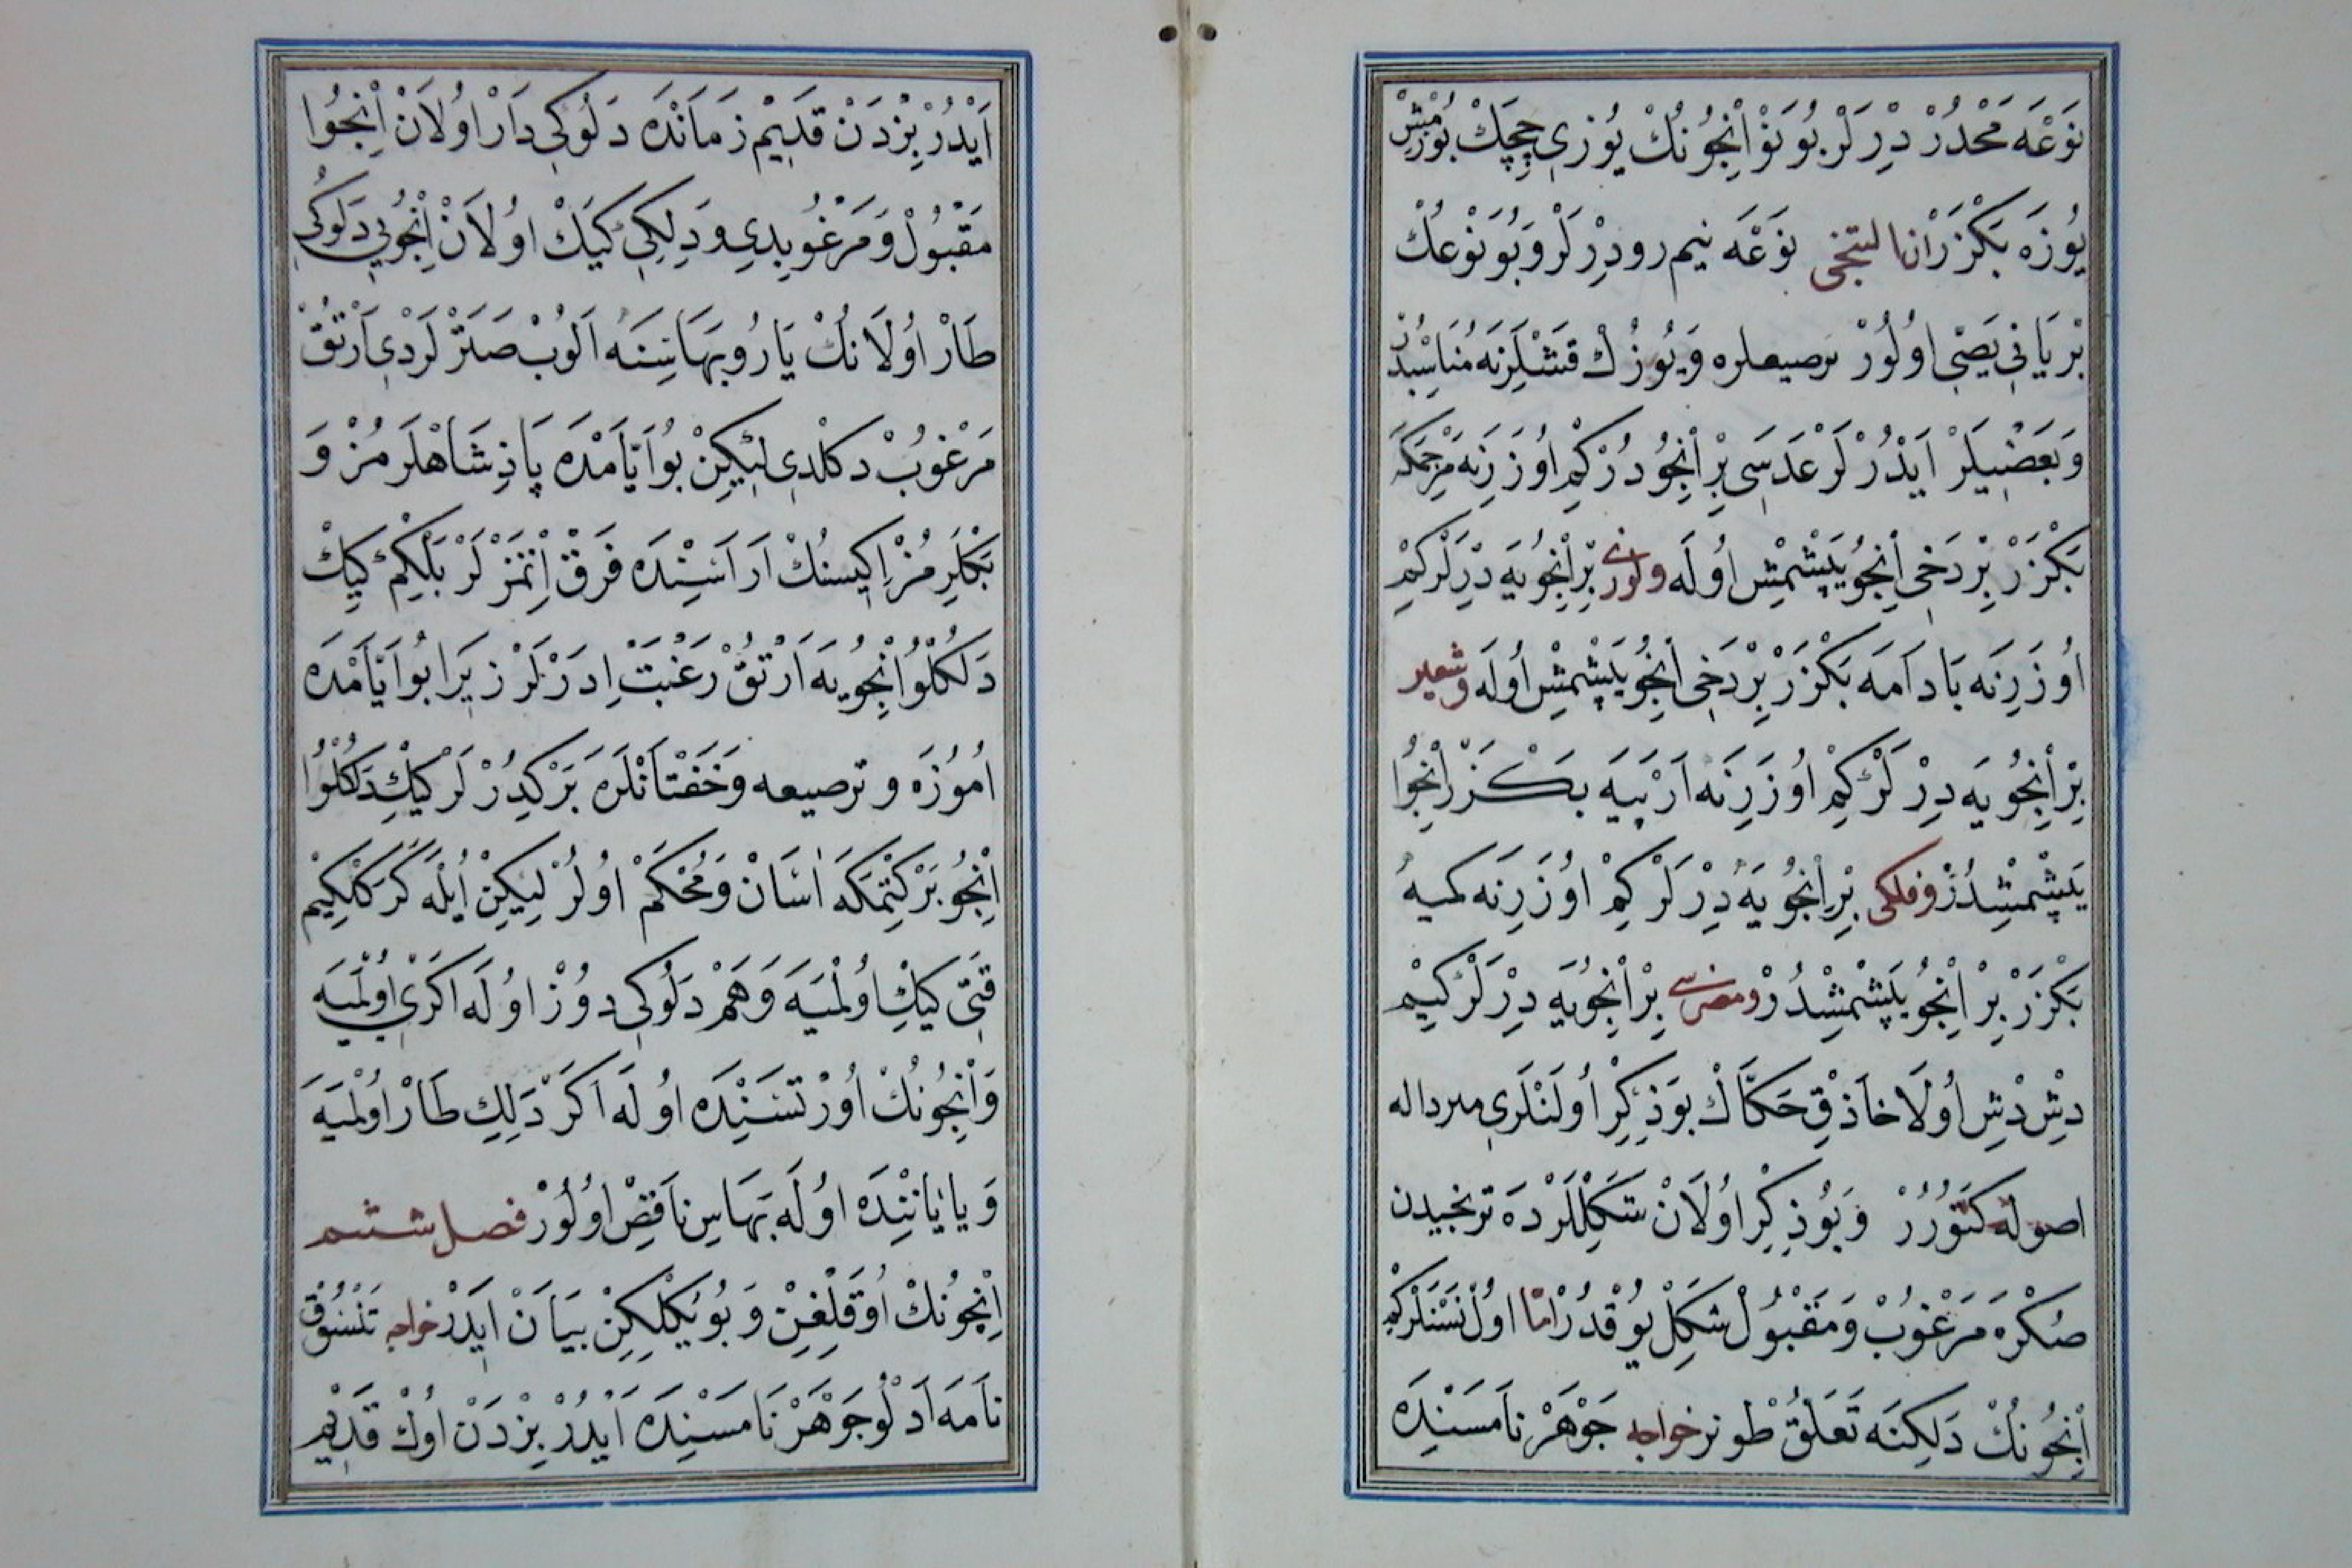 نَوْعَه مَحْدُرْ دِرْلَرْ بُو نَوْ اِنْجُونُكْ يُوزِى چِچَكْ بُوزْمِشْ
يُوزَه بَكْزَرْ اَنا لتجى نَوْعَه نيم رو دِرْلَرْ وَ بُو نَوْعُكْ
بِرْ يَانِى يَصِّى اُولُورْ ترصيعلره وَ يُوزُكْ قَشْلَرِنَه مُنَاسِبْدُرْ
وَ بَعْضِيلَرْ اَيْدُرْلَرْ عَدَسِى بِرْ اِنْجُودُرْ كِمْ اُوزَرِنَه مَرْجَمَكَه
بَكْزَرْ بِرْ دَخِى اِنْجُو يَپِشْمِشْ اُولَه ولوزى بِرْ اِنْجُويَه دِرْلَرْ كِمْ
اُوزَرِنَه بَادَامَه بَكْزَرْ بِرْ دَخِى اِنْجُو يَپِشْمِشْ اُولَه وشعير
بِرْ اِنْجُويَه دِرْلَرْ كِمْ اُوزَرِنَه اَرْپَيَه بَكْزَرْ اِنْجُوا
يَپِشْمِشِدُرْ وفلكى بِرْ اِنْجُويَه دِرْلَرْ كِمْ اوُزَرِنَه كميهُ
بَكْزَرْ بِرْ اِنْجُو يَپِشْمِشِدُرْ ومضرسى بِرْ اِنْجُويَه دِرْلَرْ كِيمْ
دِشْ دِشْ اُولَا حَاذِقْ حَكَّاكْ بُو ذِكِرْ اُولَنْلَرِى مبرداله
اصوله كَتُورُرْ وَ بُو ذِكِرْ اُولَانْ شَكِلْلَرْدَه ترنجيدن
صُكْرَه مَرْغُوبْ وَ مَقْبُولْ شَكِلْ يُوقْدُرْ اَمَّا اُولْ نَسْنَلَرْ كِمْ
اِنْجُونُكْ دَلِكِنَه تَعَلُّقْ طوتر خواجه جَوْهَرْ نَامَسِنْدَه
اَيْدُرْ بِزْدَنْ قَدِيمْ زَمَانْدَه دَلُوكِى دَارْ اُولَانْ اِنْجُوا
مَقْبُولْ وَ مَرْغُوبِدِى وَ دَلِكِى كِيَكْ اُولَانْ اِنْجُويِى دَلُوكُى
طَارْ اُولَانُكْ يَارُو بَهَاسِنَه اَلُوبْ صَتَرْلَرْدِى اَرْتُقْ
مَرْغُوبْ دكلدى لِيكِنْ بُو اَيَّامْدَه پَاذِشَاهْلَرمُزْ وَ
بَكْلَرِمُزْ اِكِيسِنُكْ اَرَاسِنْدَه فَرَقْ اِتْمَزْلَرْ بَلْكِمْ كِيكْ
دَلُكْلُو اِنْجُويَه اَرْتُقْ رَغْبَتْ اِدَرْلَرْ زِيَرا بُو اَيَّامْدَه
اُمُوزَه و ترصيعه وَ خَفْتَانْلَرَه بَرْكِدُرْلَرْ كِيكْ دَلُكْلُوا
اِنْجُو بَرْكِتْمَكَه اٰسَانْ وَ مُحْكَمْ اُولُرْ لِيكِنْ اُيْلَه كَرَكْلِكِيمْ
قَتِى كِيكْ اُولْمَيَه وَ هَمْ دَلُوكِى دُوزْ اُولَه اَكَرِى اُولْمَيَه
وَ اِنْجُونُكْ اُورْتَسَنِنْدَه اُولَه اَكَرْ دَلِكِ طَارْ اُولْمَيَه
وَ يا يَانِنْدَه اُولَه بَهَاسِ نَاقِصْ اُولُورْ فصل ششم
اِنْجُونُكْ اُوقَلِغِنْ وَ بُويُكْلِكِنْ بَيَانْ اِيدَرْ خواجه تَنْسُوقْ
نَامَه اَدْلُو جَوْهَرْ نَامَسِنْدَه اَيْدُرْ بِزْدَنْ اُوكْ قَدِيمْ